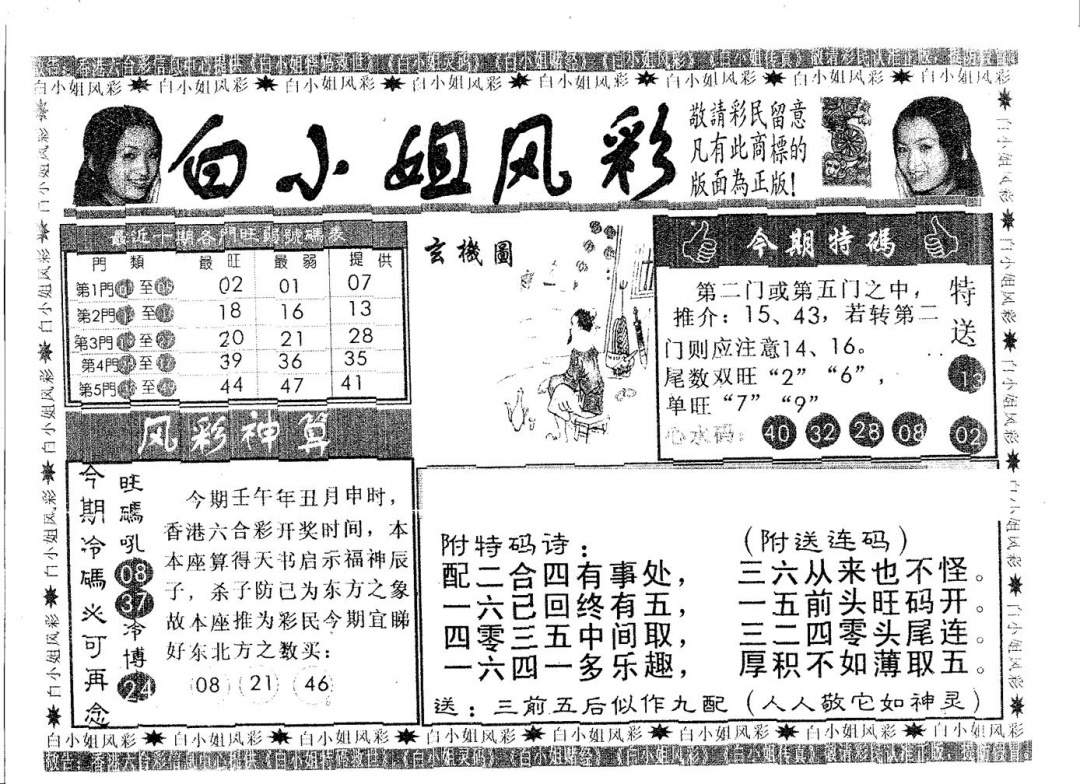 敬告：香港六合彩信息中心提供《白小姐特码救世》《白小姐灵码》《白小姐赌经》《白小姐风彩》《白小姐传真》敬请彩民认准正版，提防假冒
白小姐风彩 白小姐风彩 白小姐风彩 白小姐风彩 白小姐风彩 白小姐风彩 白小姐风彩 白小姐风彩
白小姐风彩
敬請彩民留意
凡有此商標的
版面為正版!
最近十期各門旺弱號碼表
門類 最旺 最弱 提供
第1門 至 02 01 07
第2門 至 18 16 13
第3門 至 20 21 28
第4門 至 39 36 35
第5門 至 44 47 41
玄機圖
今期特碼
第二门或第五门之中，
推介：15、43，若转第二
门则应注意14、16。
尾数双旺“2”“6”，
单旺“7”“9”
心水码：40 32 28 08
特送
13
02
风彩神算
今期冷碼火可再念
旺碼吼
08
37
冷博
24
今期壬午年丑月申时，
香港六合彩开奖时间，本
本座算得天书启示福神辰
子，杀子防己为东方之象
故本座推为彩民今期宜睇
好东北方之数买：
08 21 46
附特码诗：
配二合四有事处，
一六已回终有五，
四零三五中间取，
一六四一多乐趣，
（附送连码）
三六从来也不怪。
一五前头旺码开。
三二四零头尾连。
厚积不如薄取五。
送：三前五后似作九配（人人敬它如神灵）
白小姐风彩 白小姐风彩 白小姐风彩 白小姐风彩 白小姐风彩 白小姐风彩 白小姐风彩 白小姐风彩